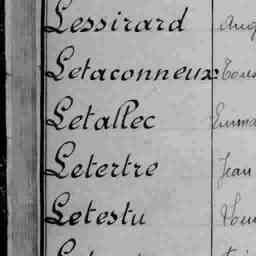 Lessirard
Letaconneux
Letallec
Letertre Jean
Letestu